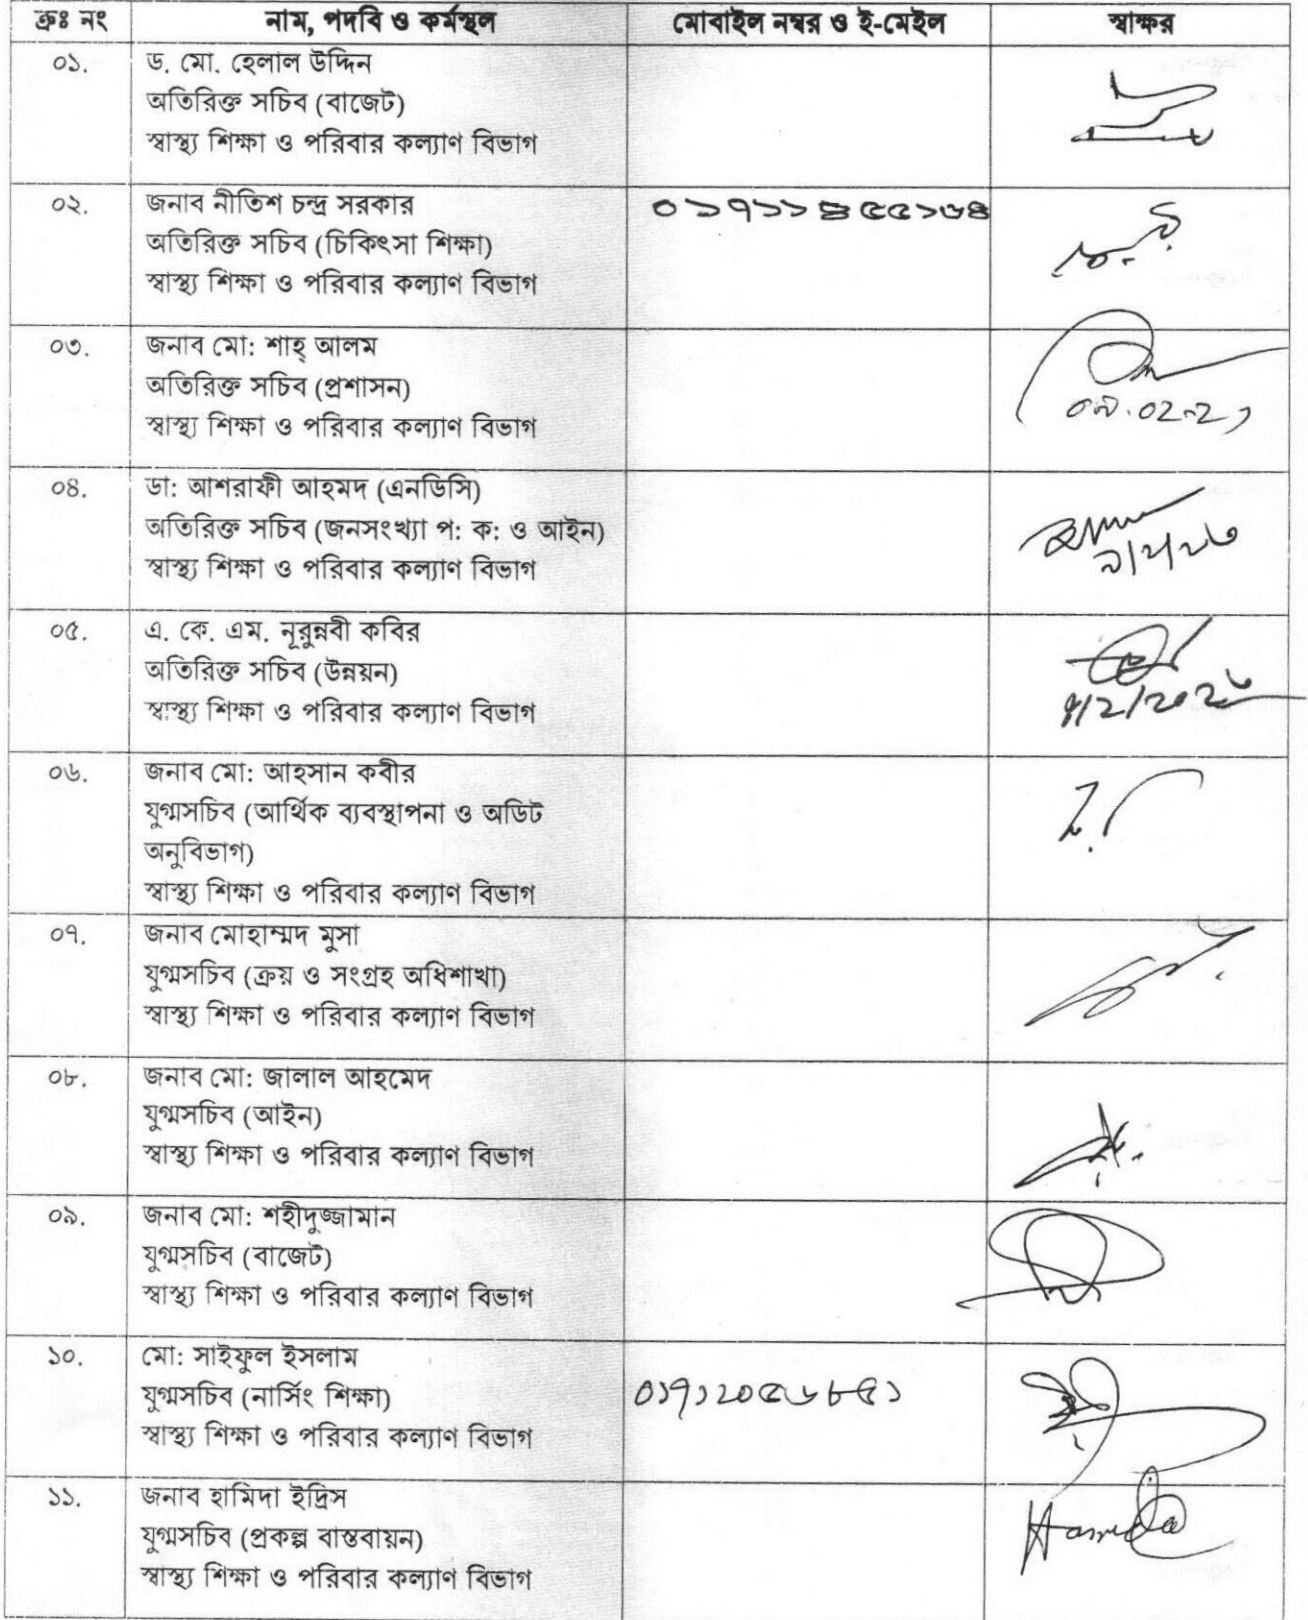 ক্রঃ নং নাম, পদবি ও কর্মস্থল মোবাইল নম্বর ও ই-মেইল স্বাক্ষর
০১. ড. মো. হেলাল উদ্দিন
অতিরিক্ত সচিব (বাজেট)
স্বাস্থ্য শিক্ষা ও পরিবার কল্যাণ বিভাগ
০২. জনাব নীতিশ চন্দ্র সরকার ০১৭১১৪৫৫১৬৪
অতিরিক্ত সচিব (চিকিৎসা শিক্ষা)
স্বাস্থ্য শিক্ষা ও পরিবার কল্যাণ বিভাগ
০৩. জনাব মো: শাহ্ আলম
অতিরিক্ত সচিব (প্রশাসন)
স্বাস্থ্য শিক্ষা ও পরিবার কল্যাণ বিভাগ
০৪. ডা: আশরাফী আহমদ (এনডিসি)
অতিরিক্ত সচিব (জনসংখ্যা প: ক: ও আইন)
স্বাস্থ্য শিক্ষা ও পরিবার কল্যাণ বিভাগ
০৫. এ. কে. এম. নূরুন্নবী কবির
অতিরিক্ত সচিব (উন্নয়ন)
স্বাস্থ্য শিক্ষা ও পরিবার কল্যাণ বিভাগ
০৬. জনাব মো: আহসান কবীর
যুগ্মসচিব (আর্থিক ব্যবস্থাপনা ও অডিট
অনুবিভাগ)
স্বাস্থ্য শিক্ষা ও পরিবার কল্যাণ বিভাগ
০৭. জনাব মোহাম্মদ মুসা
যুগ্মসচিব (ক্রয় ও সংগ্রহ অধিশাখা)
স্বাস্থ্য শিক্ষা ও পরিবার কল্যাণ বিভাগ
০৮. জনাব মো: জালাল আহমেদ
যুগ্মসচিব (আইন)
স্বাস্থ্য শিক্ষা ও পরিবার কল্যাণ বিভাগ
০৯. জনাব মো: শহীদুজ্জামান
যুগ্মসচিব (বাজেট)
স্বাস্থ্য শিক্ষা ও পরিবার কল্যাণ বিভাগ
১০. মো: সাইফুল ইসলাম
যুগ্মসচিব (নার্সিং শিক্ষা)
স্বাস্থ্য শিক্ষা ও পরিবার কল্যাণ বিভাগ
১১. জনাব হামিদা ইদ্রিস
যুগ্মসচিব (প্রকল্প বাস্তবায়ন) Hamida
স্বাস্থ্য শিক্ষা ও পরিবার কল্যাণ বিভাগ